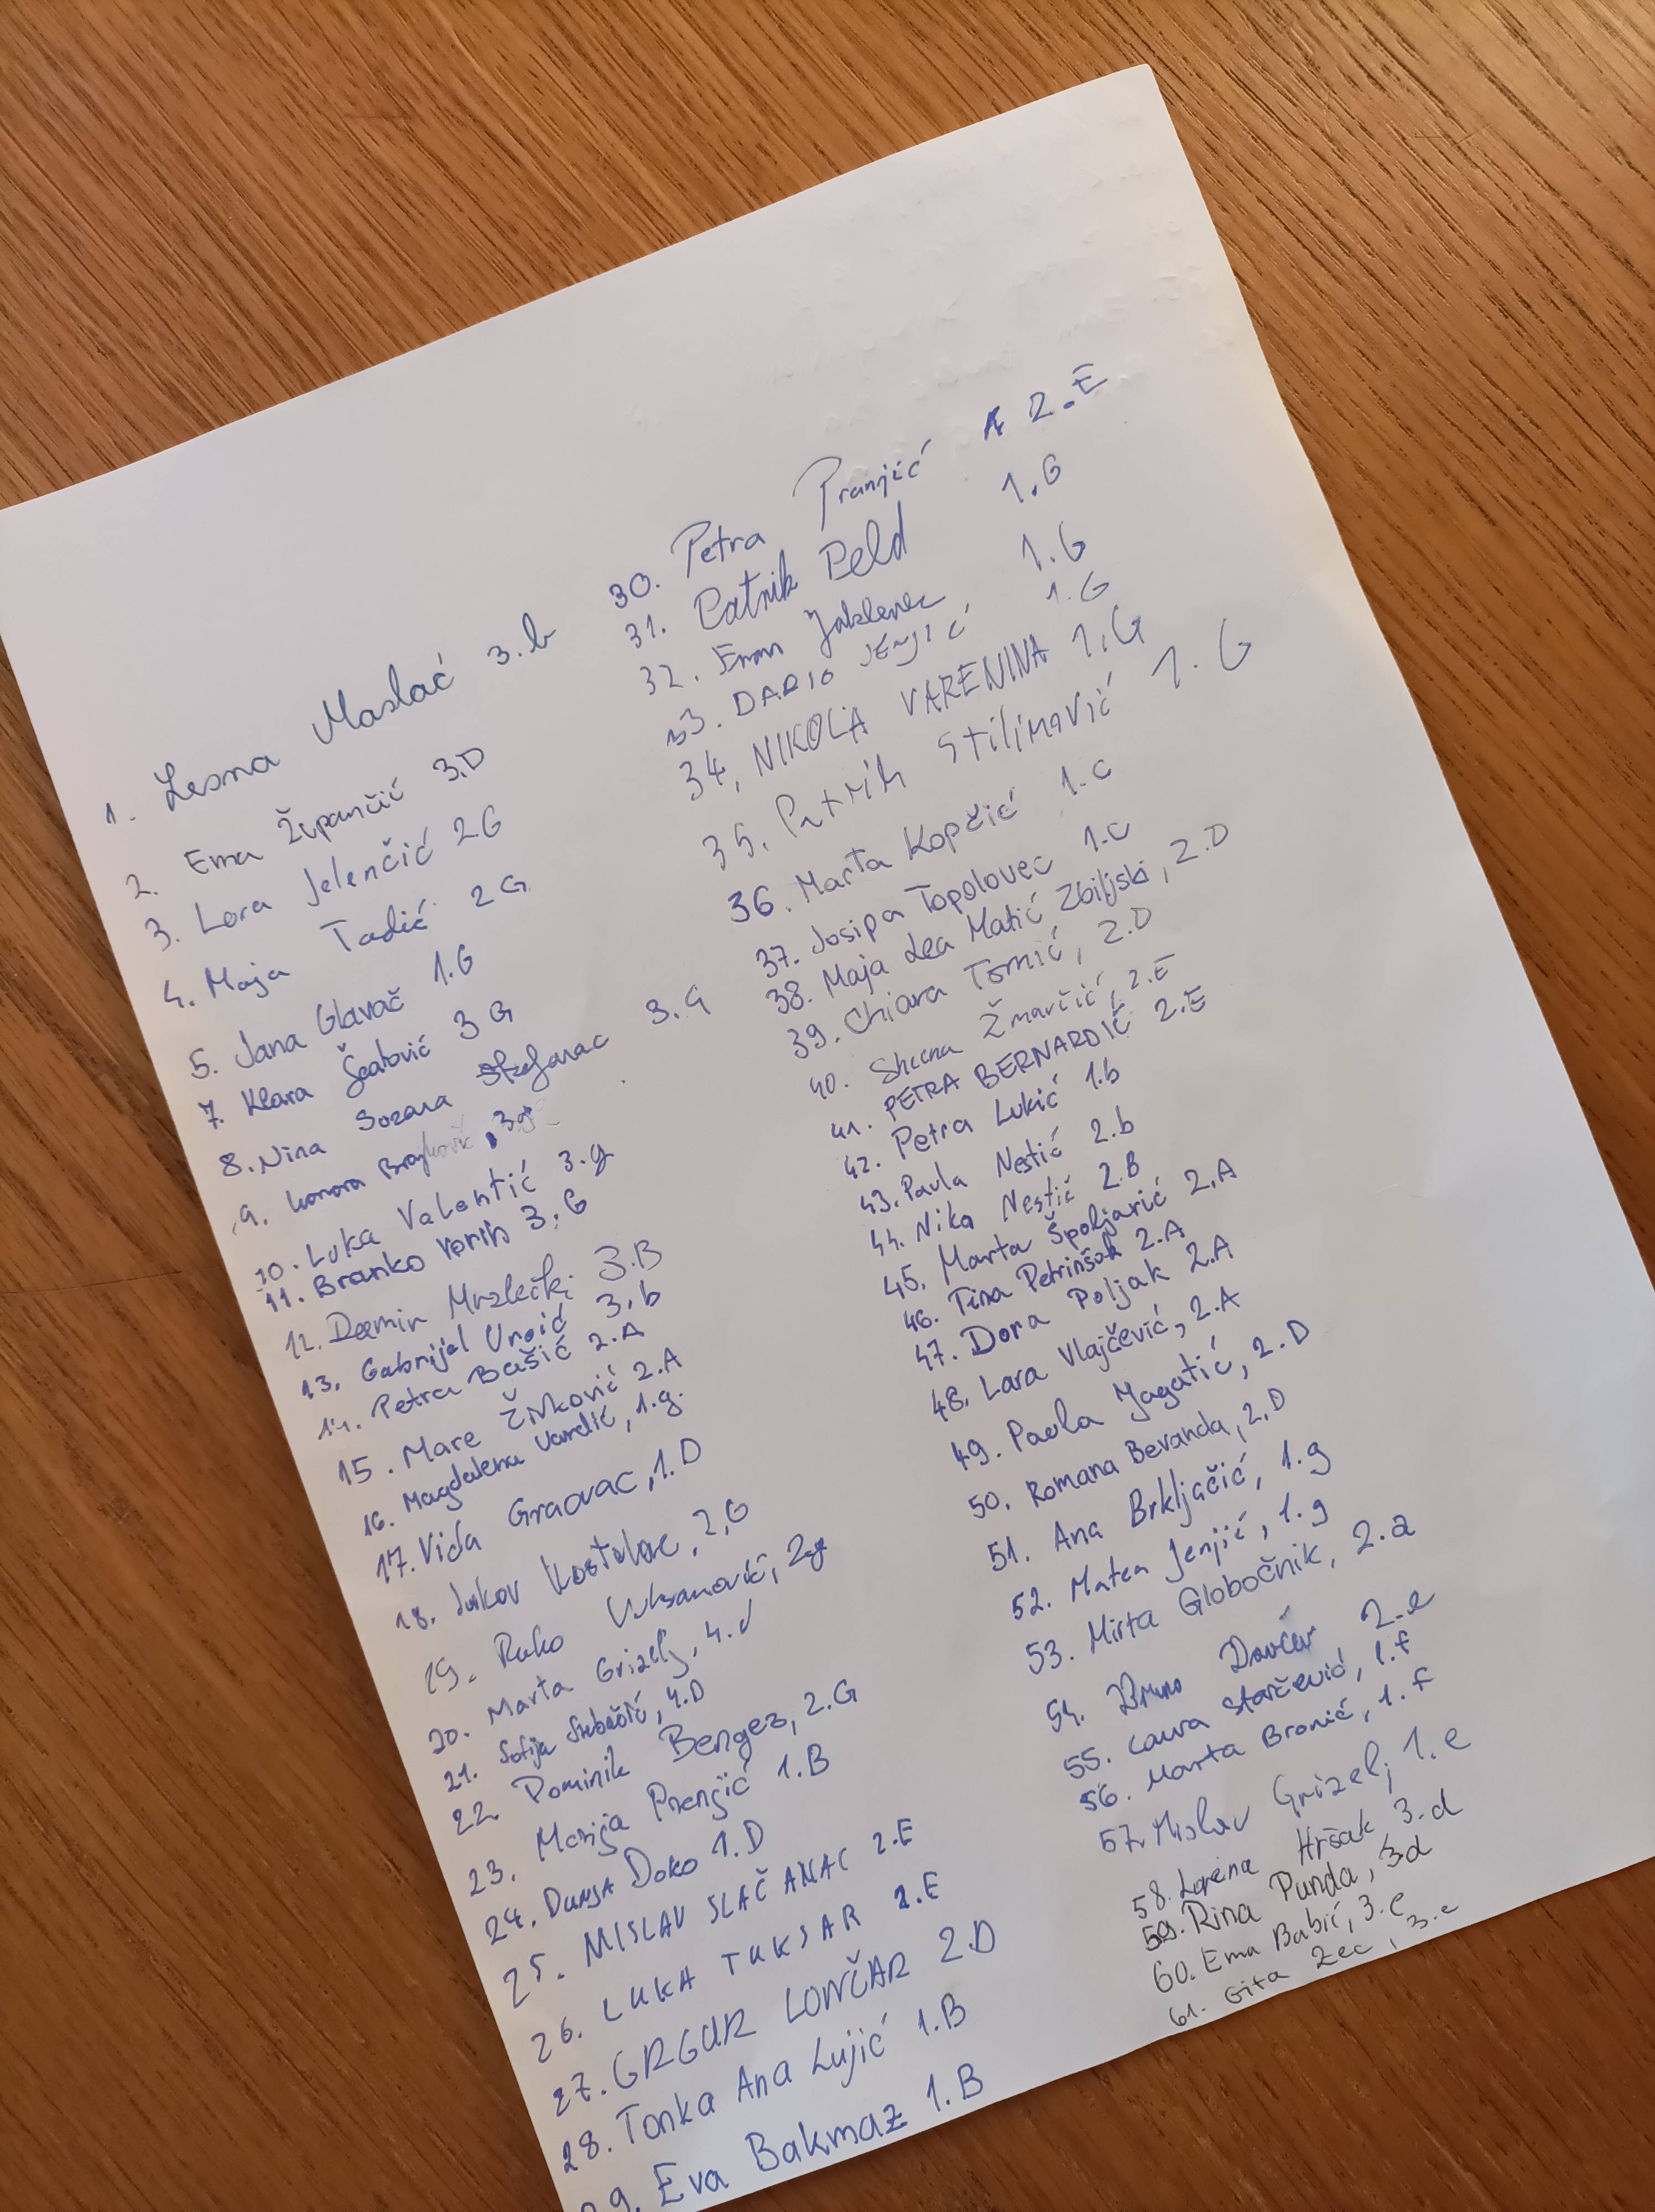 1. Lesna Maslać 3.b
2. Ema Župančić 3.D
3. Lora Jelenčić 2G
4. Maja Tadić 2G
5. Jana Glavač 1.G
7. Klara Šeatović 3G
8. Nina Sozara 3.g
9. 3g
10. Luka Valentić 3.g
11. Branko Vorih 3.G
12. Damir 3.B
13. Gabrijel Uroić 3.b
14. Petra Bašić 2.A
15. Mare Živković 2.A
16. Magdalena 1.g.
17. Vida Graovac, 1.D
18. 2,G
19. Roko Vuksanović, 2g
20. Marta Grizelj, 4.d
21. Sofija 4.D
22 Dominik Bengez, 2.G
23. Marija Prenjić 1.B
24. Dunja Doko 1.D
25. MISLAV SLAČANAC 2.E
26. LUKA TUKSAR 2.E
27. GRGUR LONČAR 2.D
28. Tonka Ana Lujić 1.B
29. Eva Bakmaz 1.B
30. Petra Pranjić 2.E
31. Patrik Peld 1.G
32. Jaklenec 1.G
33. DARIO JENJIĆ 1.G
34. NIKOLA VARENINA 1.G
35. Patrik Stilinović 1.G
36. Marta Kopčić 1.c
37. Josipa Topolovec 1.c
38. Maja Lea Matić Zbiljski, 2.D
39. Chiara Tomić, 2.D
40. Žmarčić, 2.E
41. PETRA BERNARDIĆ 2.E
42. Petra Lukić 1.b
43. Paula Nestić 2.b
44. Nika Nestić 2.B
45. Marta Špoljarić 2.A
46. Tina Petrinšak 2.A
47. Dora Poljak 2.A
48. Lara Vlajčević, 2.A
49. Paola Jagatić, 2.D
50. Romana Bevanda, 2.D
51. Ana Brkljačić, 1.g
52. Matea Jenjić, 1.g
53. Mirta Globočnik, 2.a
54. Bruno Davčev, 2.e
55. Laura Starčević, 1.f
56. Marta Bronić, 1.f
57. Mislav Grizelj 1.e
58. Lorena Hršak 3.d
59. Rina Punda, 3d
60. Ema Babić, 3.e
61. Gita Zec, 3.e